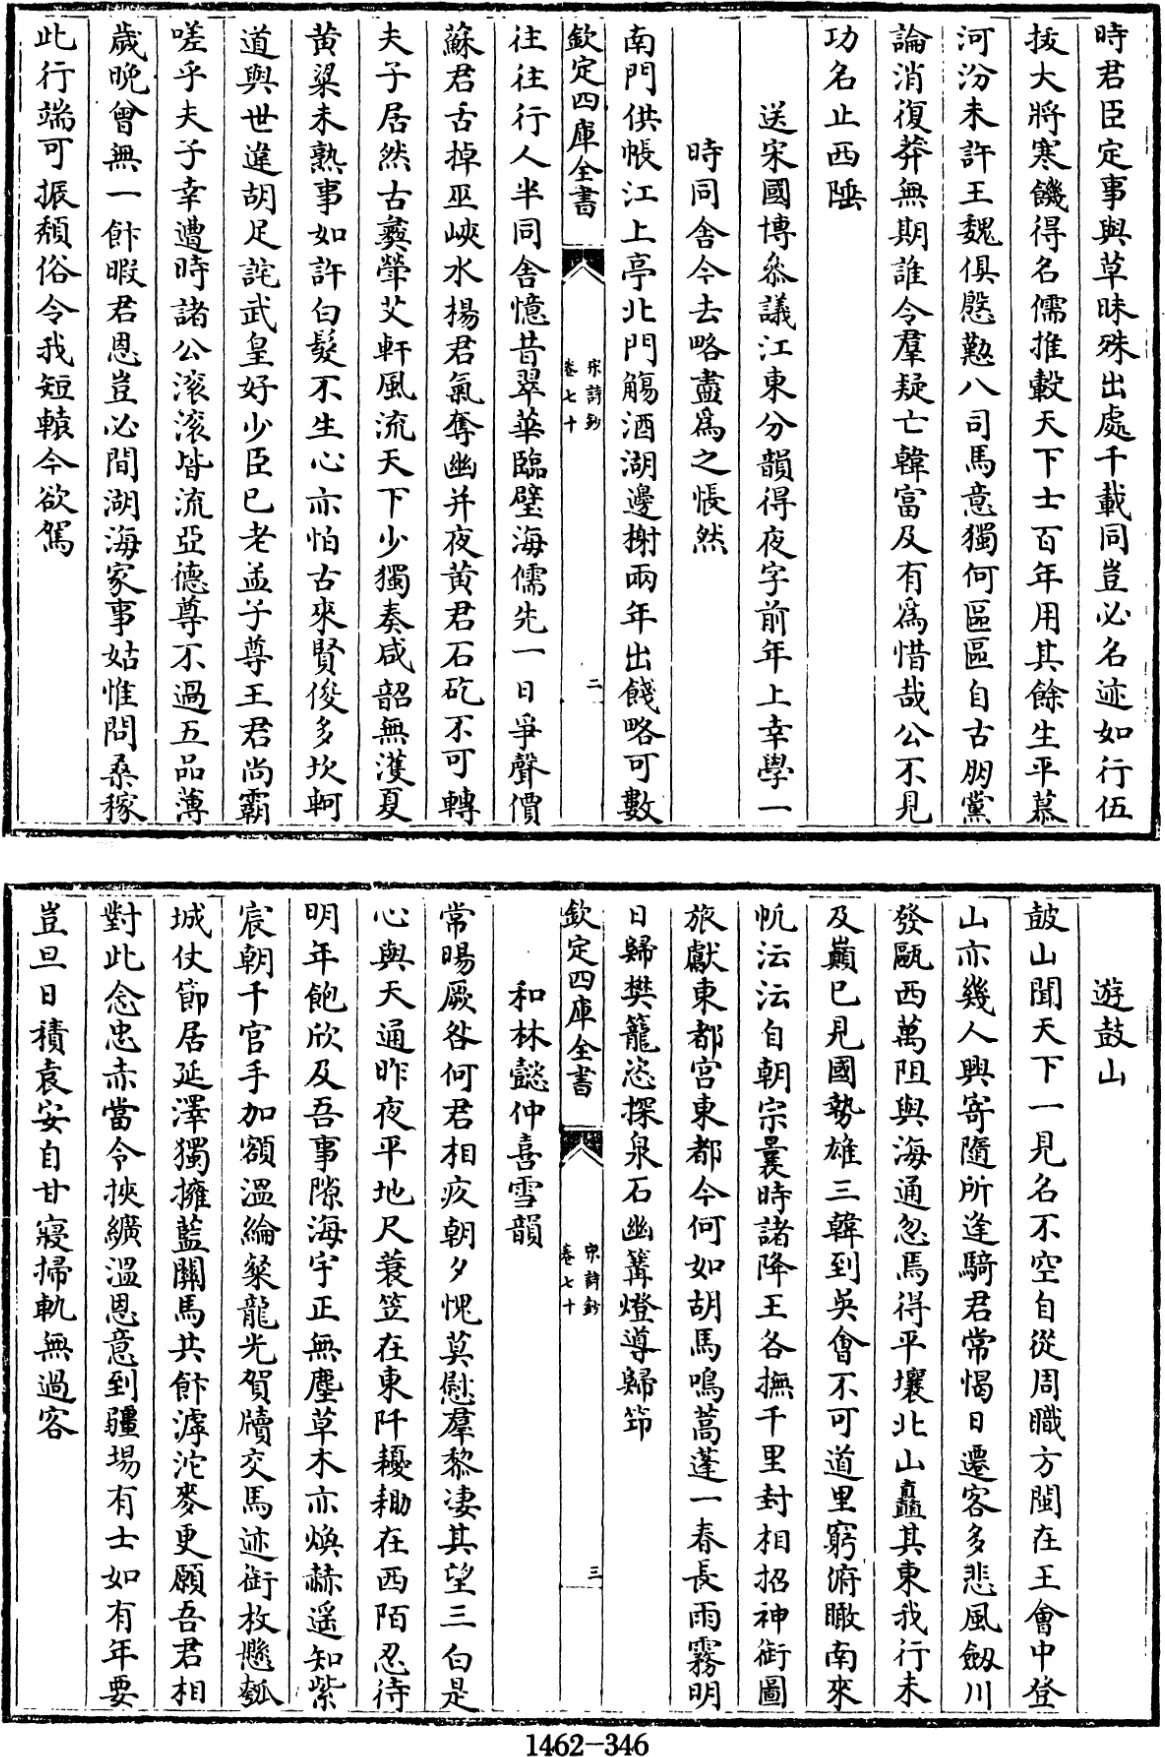 時君臣定事與草昧殊出處千載同豈必名迹如行伍
拔大將寒饑得名儒推轂天下士百年用其餘生平慕
河汾未許王魏俱慇懃八司馬意獨何區區自古朋黨
論消復莽無期誰令羣疑亡韓富及有為惜哉公不見
功名止西陲
送宋國博叅議江東分韻得夜字前年上幸學一
時同舍今去略盡為之悵然
南門供帳江上亭北門觴酒湖邊榭兩年出餞略可數
欽定四庫全書
宋詩鈔
卷七十
二
往往行人半同舍憶昔翠華臨璧海儒先一日爭聲價
蘇君舌掉巫峽水揚君氣奪幽并夜黃君石矻不可轉
夫子居然古彞犖艾軒風流天下少獨奏咸韶無濩夏
黃粱未熟事如許白髮不生心亦怕古來賢俊多坎軻
道與世違胡足詫武皇好少臣已老孟子尊王君尚霸
嗟乎夫子幸遭時諸公滚滚皆流亞德尊不過五品薄
歲晚曾無一飰暇君恩豈必間湖海家事姑惟問桑稼
此行端可振頽俗令我短轅今欲駕
遊鼓山
皷山聞天下一見名不空自從周職方閩在王會中登
山亦幾人興寄隨所逢騎君常愒日遷客多悲風劔川
發甌西萬阻與海通忽焉得平壤北山矗其東我行未
及巔已見國勢雄三韓到吳會不可道里窮俯瞰南來
帆沄沄自朝宗曩時諸降王各撫千里封相招神銜圖
旅獻東都宮東都今何如胡馬鳴蒿蓬一春長雨霧明
日歸樊籠恣探泉石幽篝燈導歸筇
欽定四庫全書
宋詩鈔
卷七十
三
和林懿仲喜雪韻
常暘厥咎何君相疚朝夕愧莫慰羣黎凄其望三白是
心與天通昨夜平地尺蓑笠在東阡耰耡在西陌忍待
明年飽欣及吾事隙海宇正無塵草木亦煥赫遥知紫
宸朝千官手加額溫綸粲龍光賀牘交馬迹銜枚懸瓠
城仗節居延澤獨擁藍關馬共飰滹沱麥更願吾君相
對此念忠赤當令挾纊溫恩意到疆場有士如有年要
豈旦日積袁安自甘寢掃軌無過客
1462-346